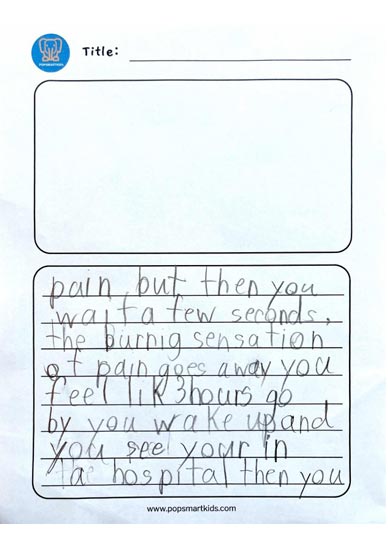 POPSMARTKIDS
Title:
pain, but then you
wait a few seconds,
the burnig sensation
of pain goes away you
feel lik 3 hours go
by you wake up and
you see your in
the hospital then you
www.popsmartkids.com